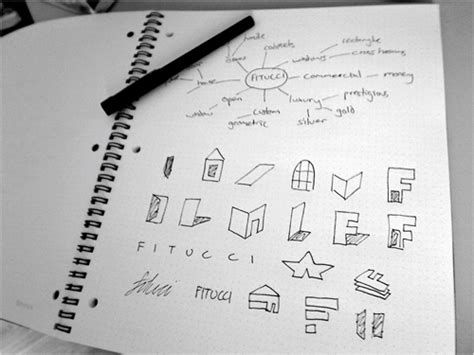 made
cabinets
rectangle
windows
cross hatching
house
FITUCCI
commercial
money
open
luxury
prestigious
window
custom
gold
geometric
silver
F
F
F I T U C C I
FITUCCI
F